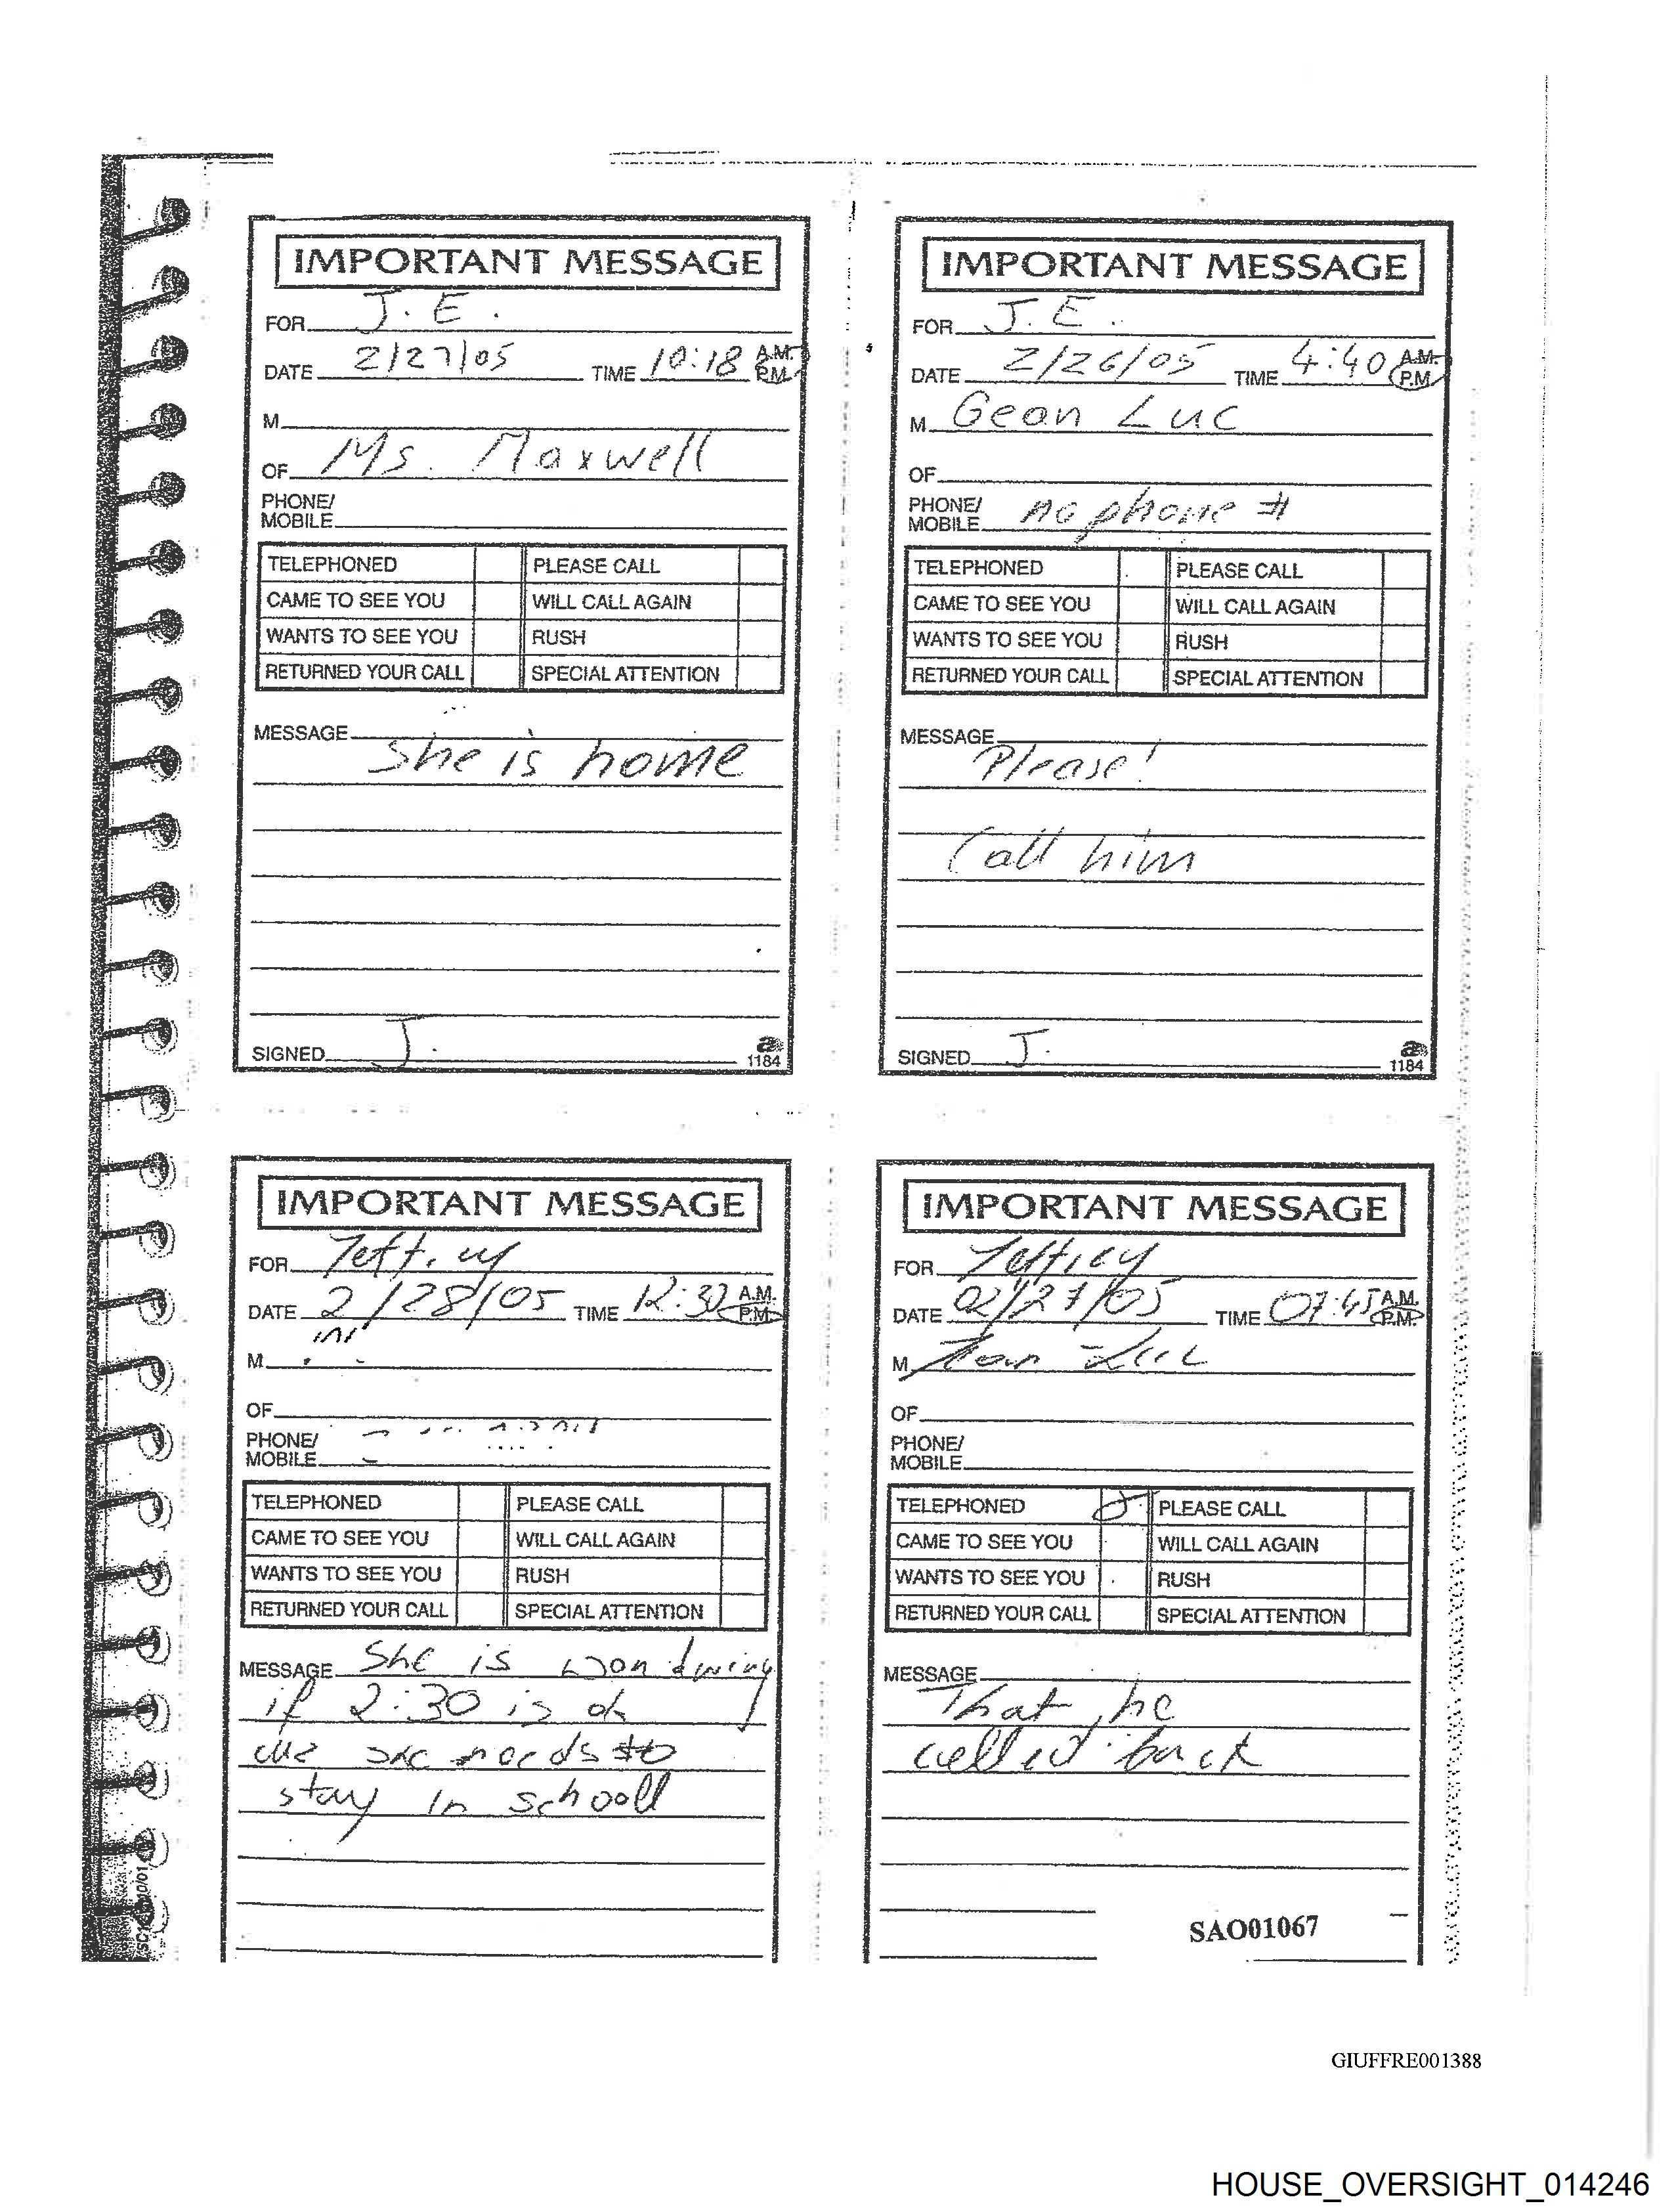 IMPORTANT MESSAGE
FOR J. E.
DATE 2/27/05 TIME 10:18 A.M. P.M.
M
OF Ms. Maxwell
PHONE/
MOBILE
TELEPHONED PLEASE CALL
CAME TO SEE YOU WILL CALL AGAIN
WANTS TO SEE YOU RUSH
RETURNED YOUR CALL SPECIAL ATTENTION
MESSAGE
She is home
SIGNED J.
1184
IMPORTANT MESSAGE
FOR J. E.
DATE 2/26/05 TIME 4:40 A.M. P.M.
M Gean Luc
OF
PHONE/
MOBILE no phone #
TELEPHONED PLEASE CALL
CAME TO SEE YOU WILL CALL AGAIN
WANTS TO SEE YOU RUSH
RETURNED YOUR CALL SPECIAL ATTENTION
MESSAGE
Please!
Call him
SIGNED J.
1184
IMPORTANT MESSAGE
FOR Jeffrey
DATE 2/28/05 TIME 12:32 A.M. P.M.
M
OF
PHONE/
MOBILE
TELEPHONED PLEASE CALL
CAME TO SEE YOU WILL CALL AGAIN
WANTS TO SEE YOU RUSH
RETURNED YOUR CALL SPECIAL ATTENTION
MESSAGE She is wondwing
if 2:30 is ok
she needs to
stay in schooll
IMPORTANT MESSAGE
FOR Jeffrey
DATE 02/27/05 TIME 07:45 A.M. P.M.
M Jean-Luc
OF
PHONE/
MOBILE
TELEPHONED PLEASE CALL
CAME TO SEE YOU WILL CALL AGAIN
WANTS TO SEE YOU RUSH
RETURNED YOUR CALL SPECIAL ATTENTION
MESSAGE
That he
called back
SAO01067
GIUFFRE001388
HOUSE_OVERSIGHT_014246